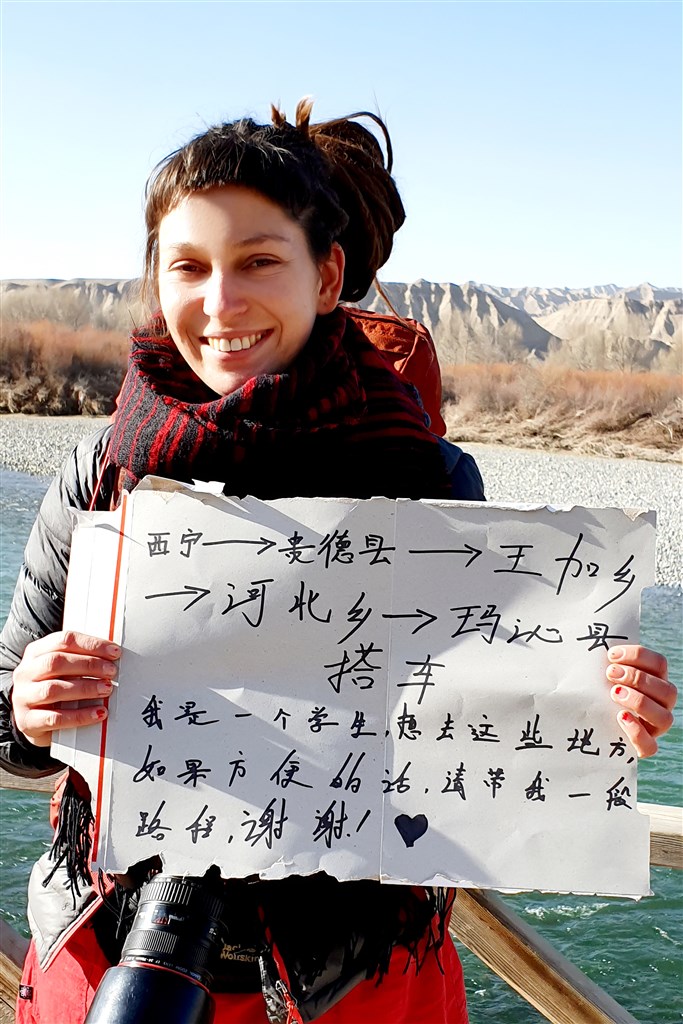 西宁→贵德县→王加乡
→河北乡→玛沁县
搭车
我是一个学生,想去这些地方,
如果方便的话,请带我一段
路程,谢谢!♥
Jack
Wolfskin